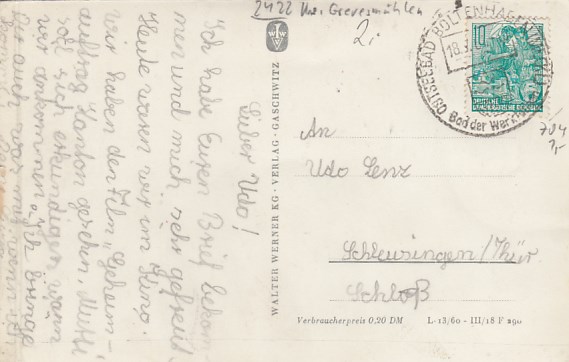 2422 Kr. Grevesmühlen
2,-
OSTSEEBAD BOLTENHAGEN
18.
Bad der Werktätigen
10
DEUTSCHE
DEMOKRATISCHE REPUBLIK
704
1,-
Lieber Udo!
Ich habe Euren Brief bekom-
men und mich sehr gefreut.
Heute waren wir im Kino.
Wir haben den Film „Geheim-
auftrag Kanton gesehen. Mutti
soll sich erkundigen wann
wir ankommen. Ich bringe
Dir auch was mit, wenn ich
WALTER WERNER KG · VERLAG · GASCHWITZ
An
Udo Lenz
Schleusingen/Thür
Schloß
Verbraucherpreis 0,20 DM L-13/60 - III/18 F 290